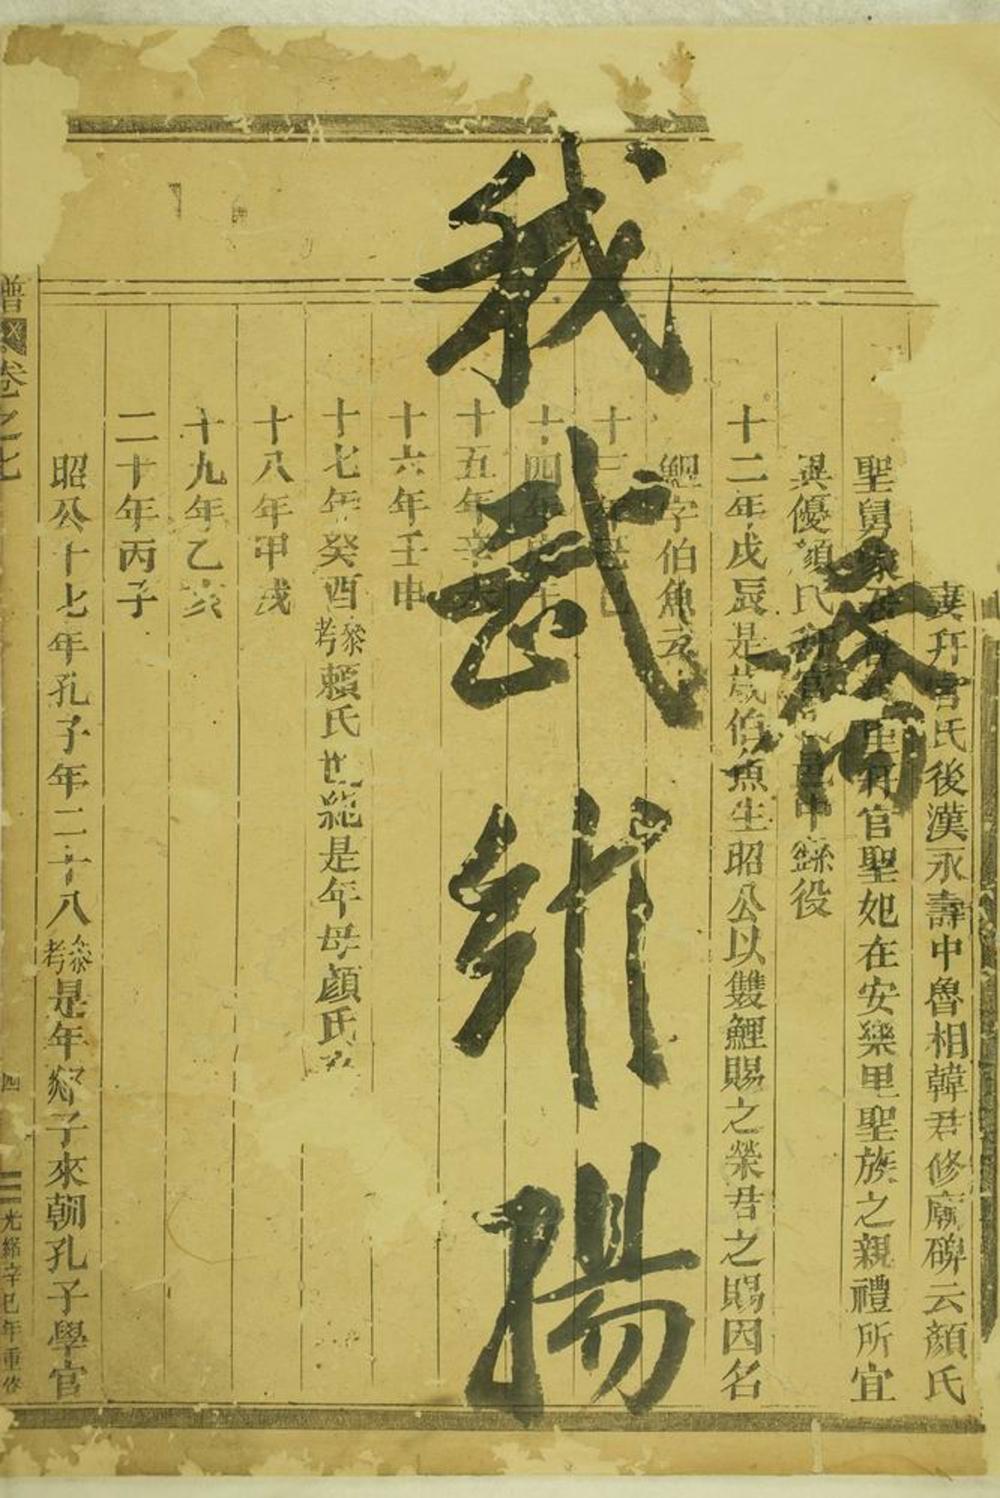 妻幵官氏後漢永壽中魯相韓君修廟碑云顏氏
聖舅 官聖妃在安樂里聖族之親禮所宜
異優顏氏 官 中繇役
十二年戊辰是歲伯魚生昭公以雙鯉賜之榮君之賜因名
鯉字伯魚云
十三年己巳
十四年庚午
十五年辛未
十六年壬申
十七年癸酉 叅考 賴氏世紀是年母顏氏
十八年甲戌
十九年乙亥
二十年丙子
昭公十七年孔子年二十八 叅考 是年郯子來朝孔子學官
譜 卷之七
四
光緒辛巳年重修
我武維揚